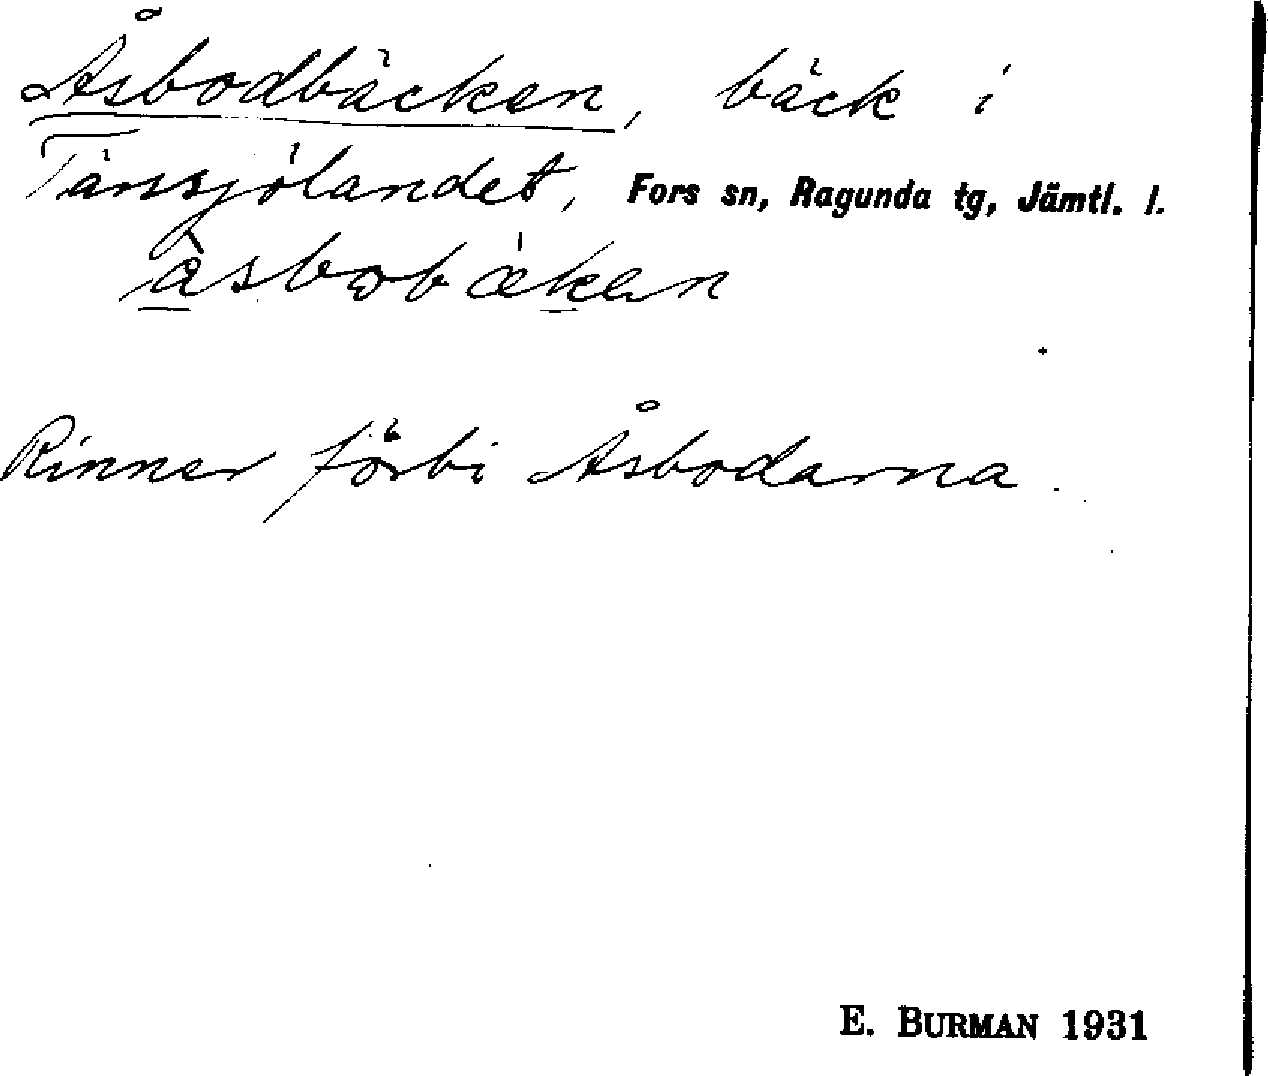 Åsbodbäcken, bäck i
Tänssjölandet, Fors sn, Ragunda tg, Jämtl. l.
Rinner förbi Åsbodarna.
E. BURMAN 1931